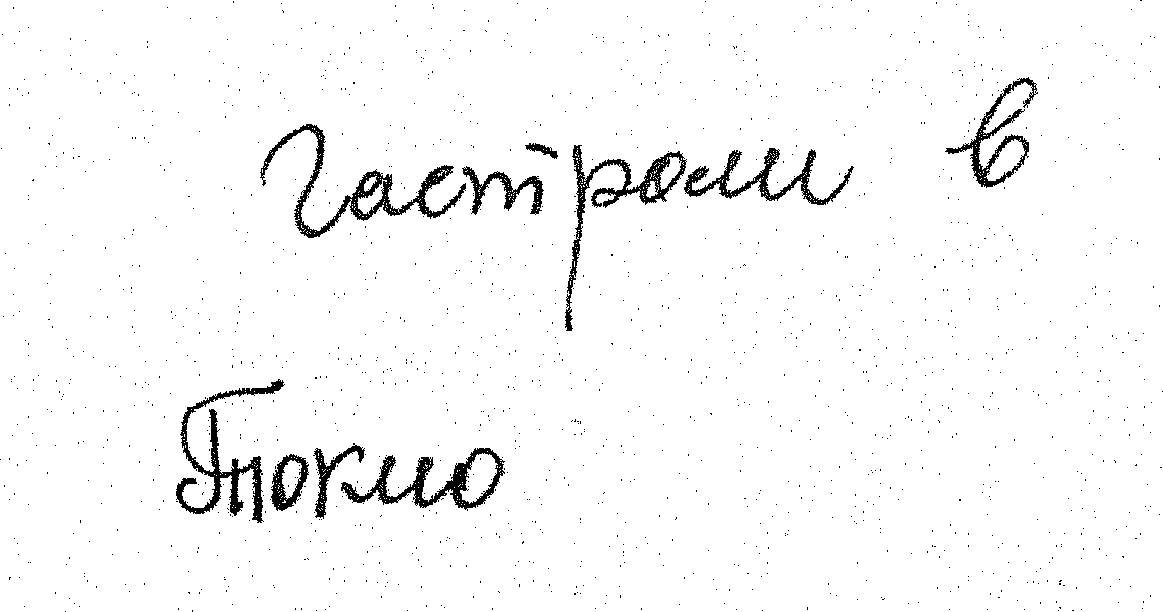 Гастроли в
Токио